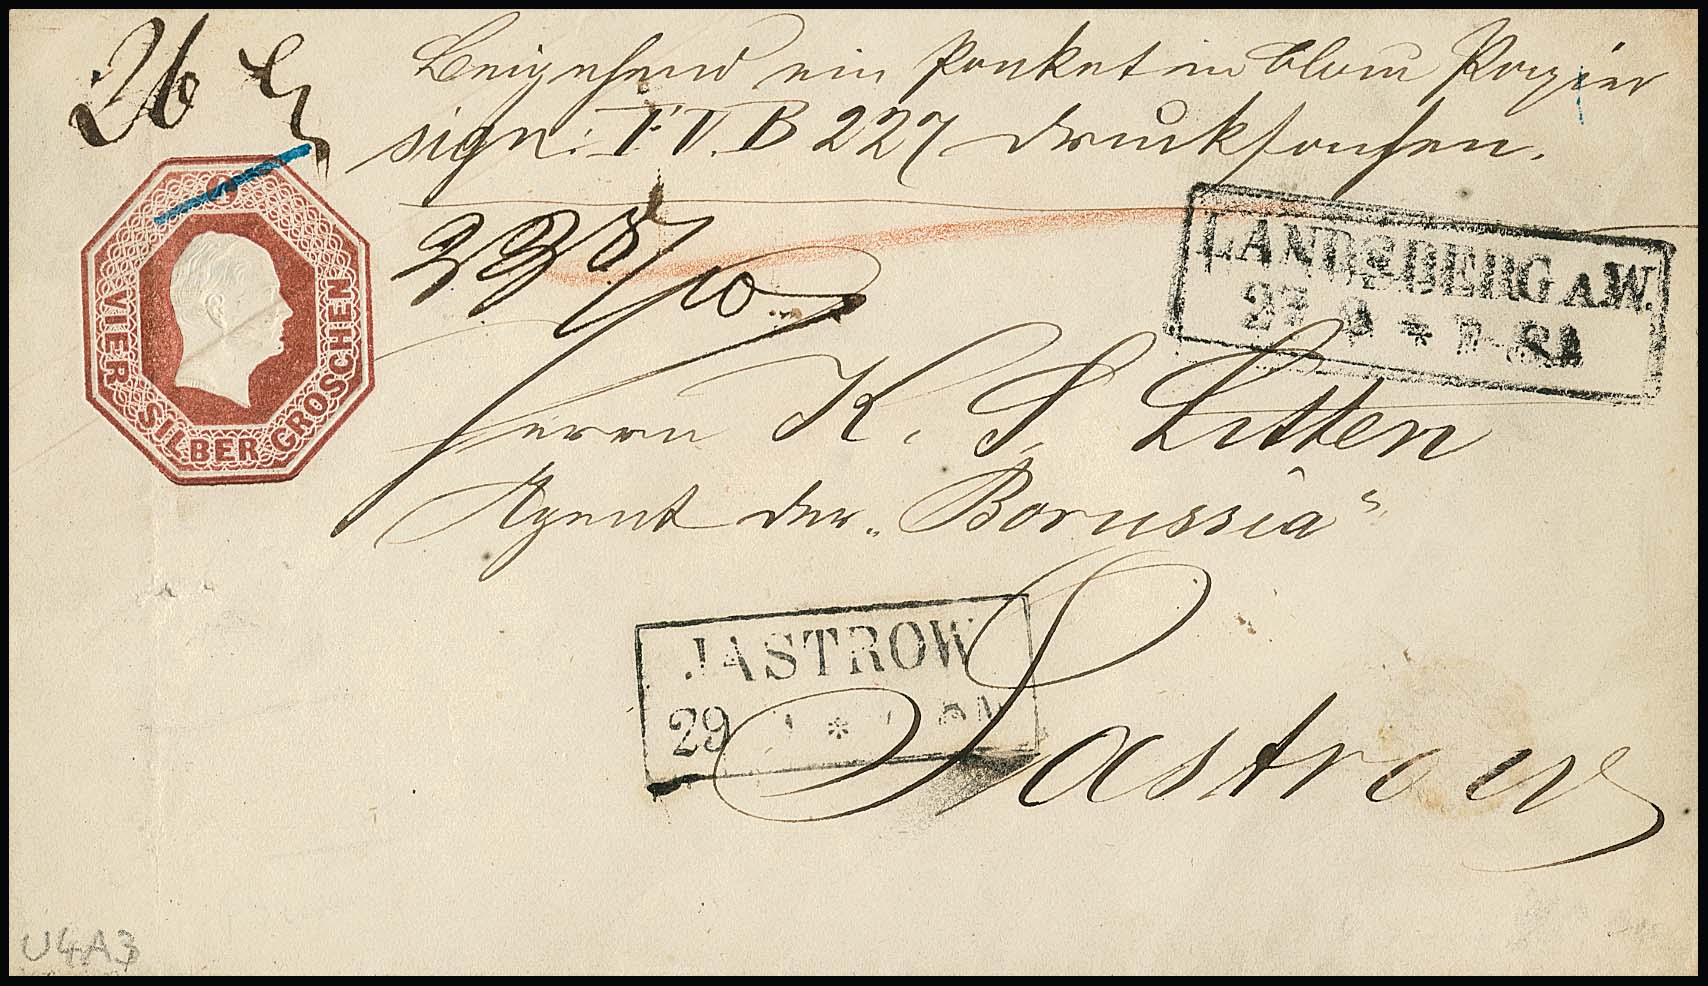 26
Beigehend ein Packet in blau Papier
sign: F V. B 227 Drucksachen.
VIER SILBER GROSCHEN
LANDSBERG A.W.
27
Herrn K. S. Litten
Agent der „Borussia“
JASTROW
29 *
Jastrow
U4A3